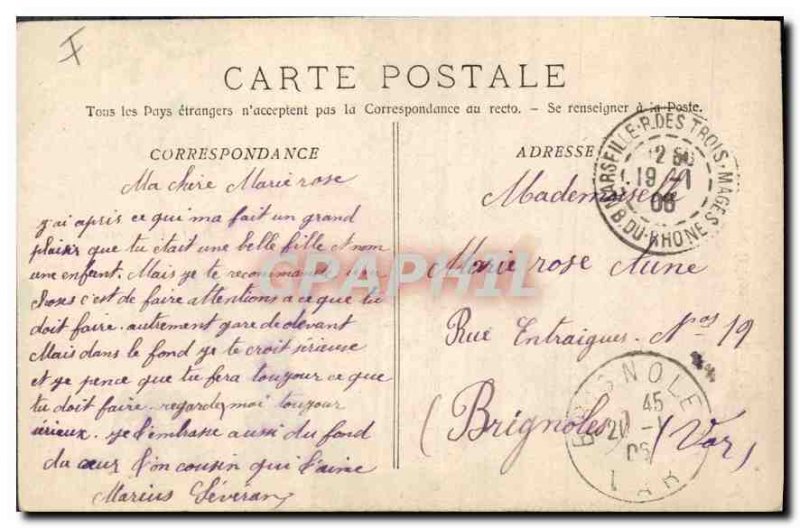 CARTE POSTALE
Tous les Pays étrangers n'acceptent pas la Correspondance au recto. - Se renseigner à la Poste.
CORRESPONDANCE
Ma chire Marie rose
j'ai apris ce qui ma fait un grand
plaisir que tu était une belle fille et nom
une enfant. Mais je te recommande une
choses c'est de faire attentions a ce que tu
doit faire. autrement gare de devant
Mais dans le fond je te croit sérieuse
et je pence que tu fera toujour ce que
tu doit faire. regardez moi toujour
sérieux. je t'embrasse aussi du fond
du cœur ton cousin qui t'aime
Marius Séveran
ADRESSE
Mademoiselle
Marie rose Aune
Rue Entraigues. Nos 19
(Brignoles) (Var)
MARSEILLE-R. DES TROIS-MAGES
19 -1
08
B. DU-RHONE
BRIGNOLES
45
20 -1
08
VAR
GRAPHIL